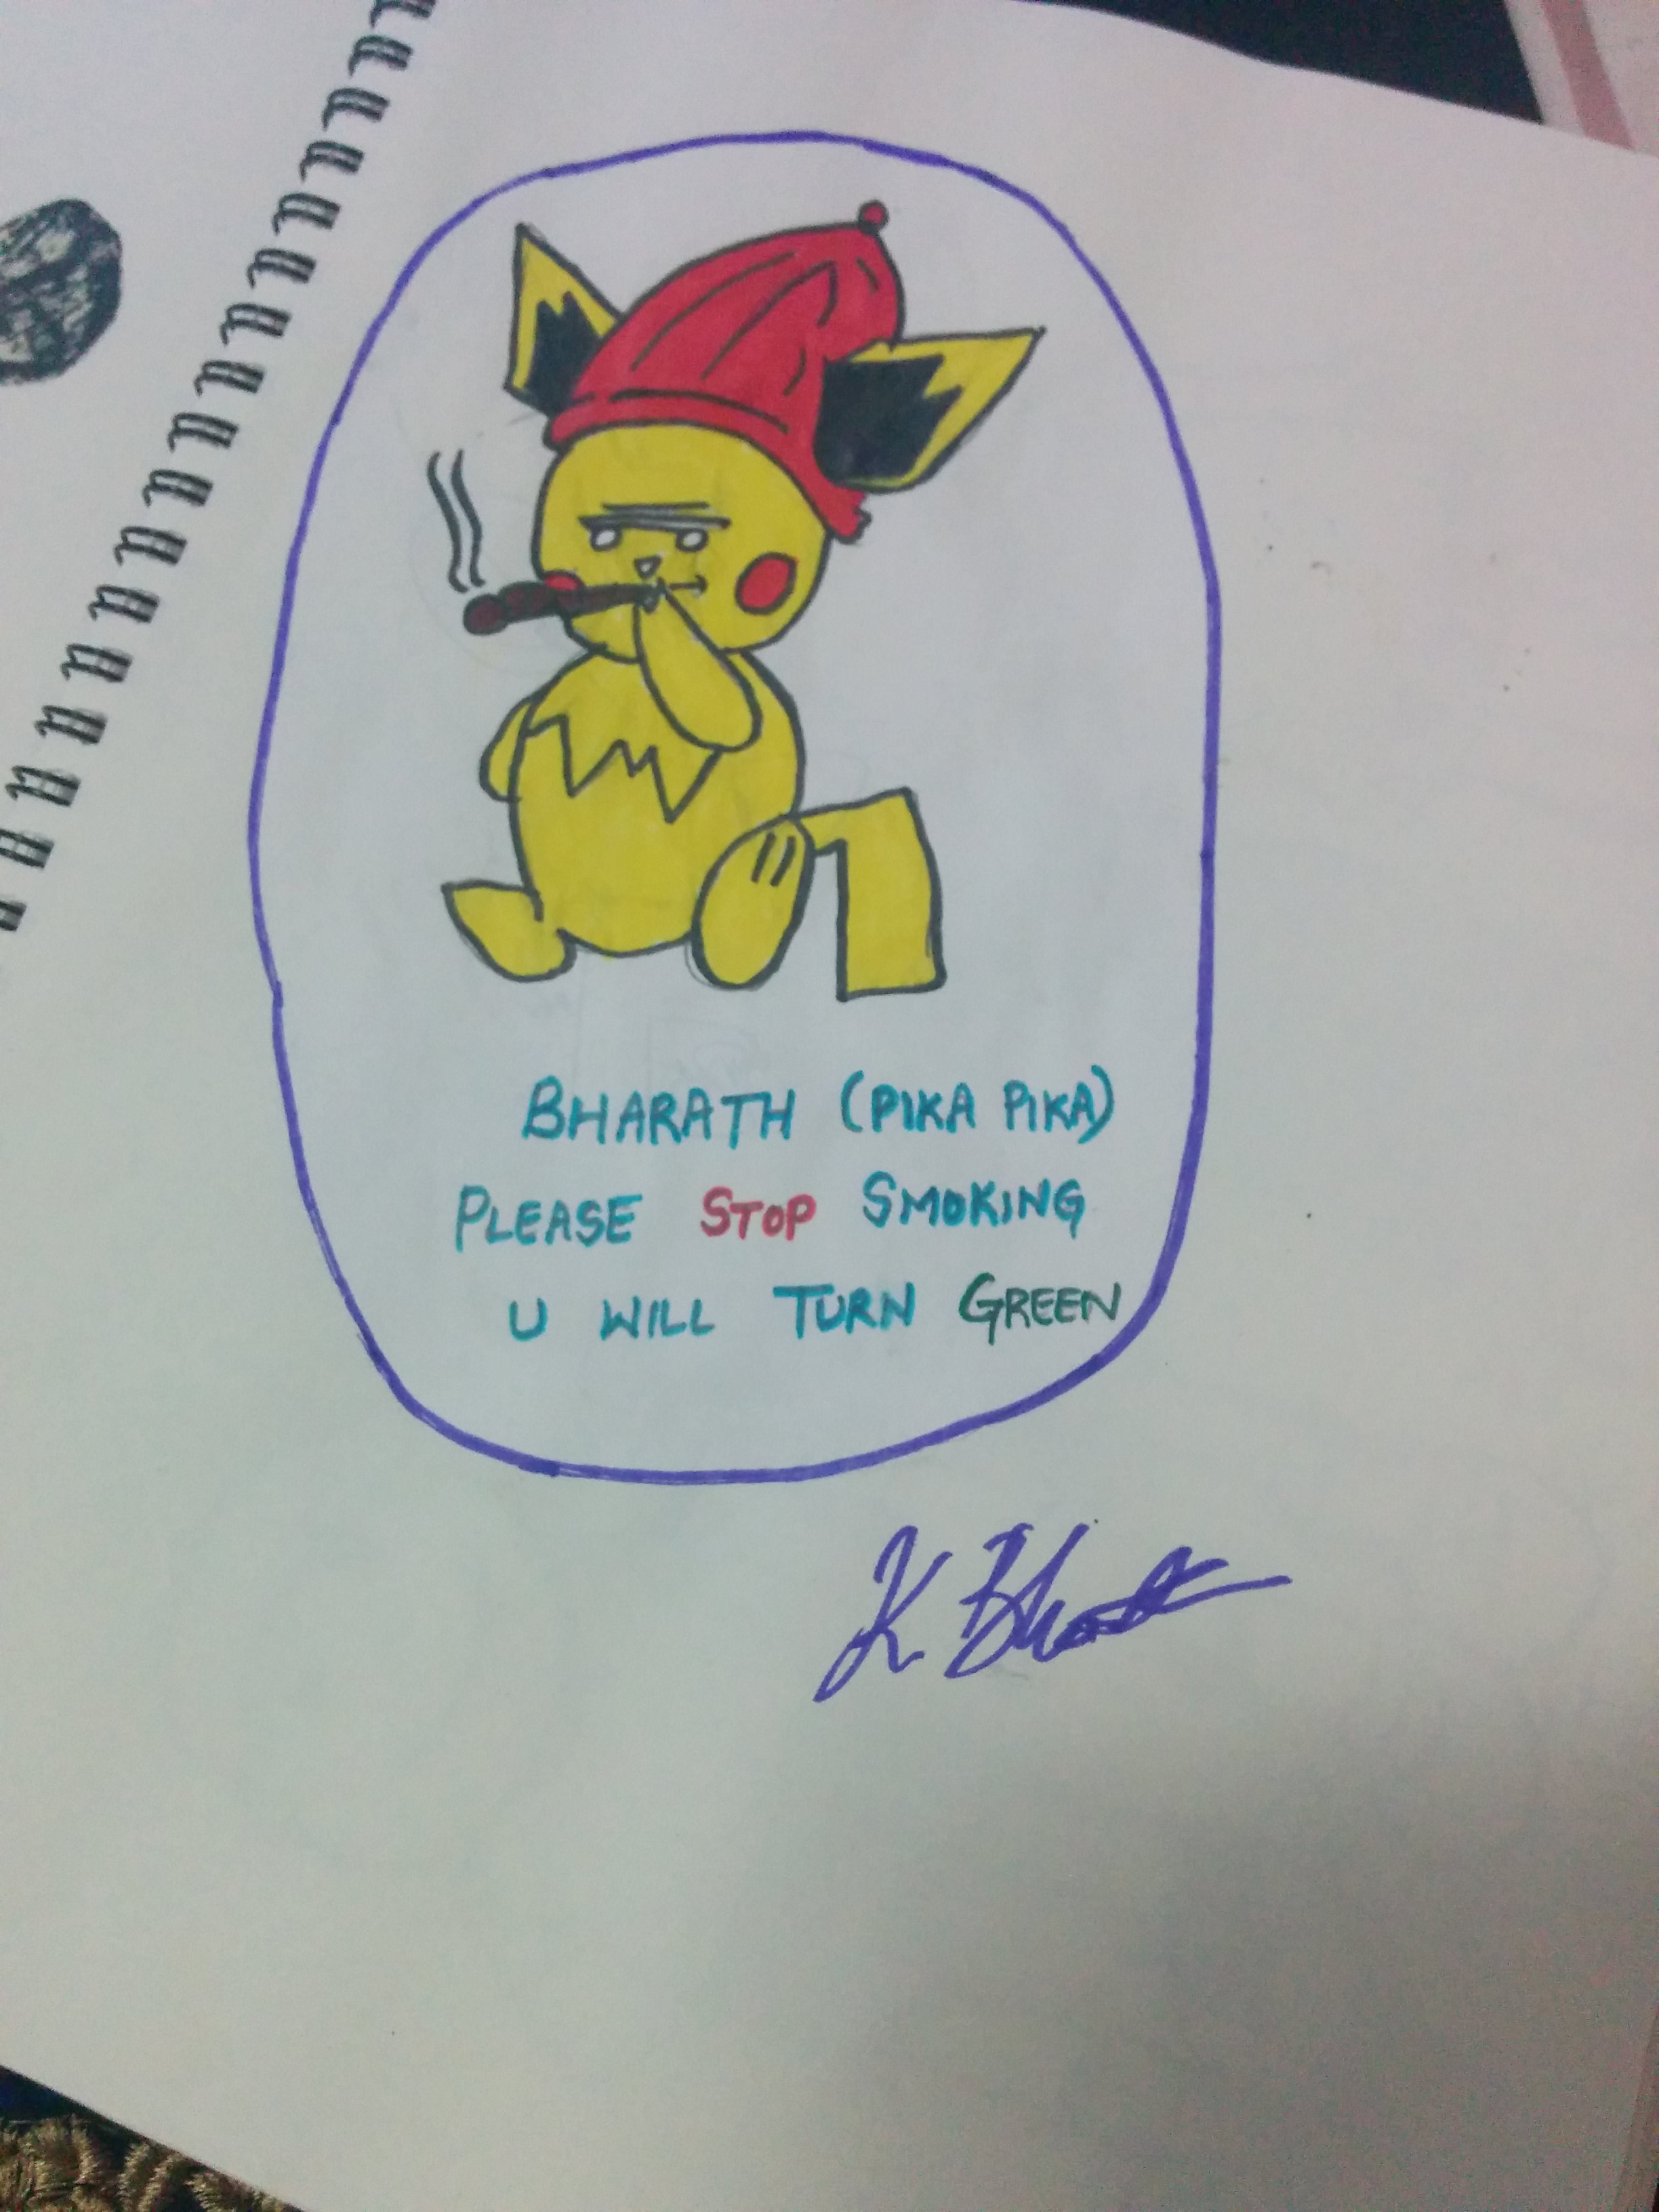 BHARATH (PIKA PIKA)
PLEASE STOP SMOKING
U WILL TURN GREEN